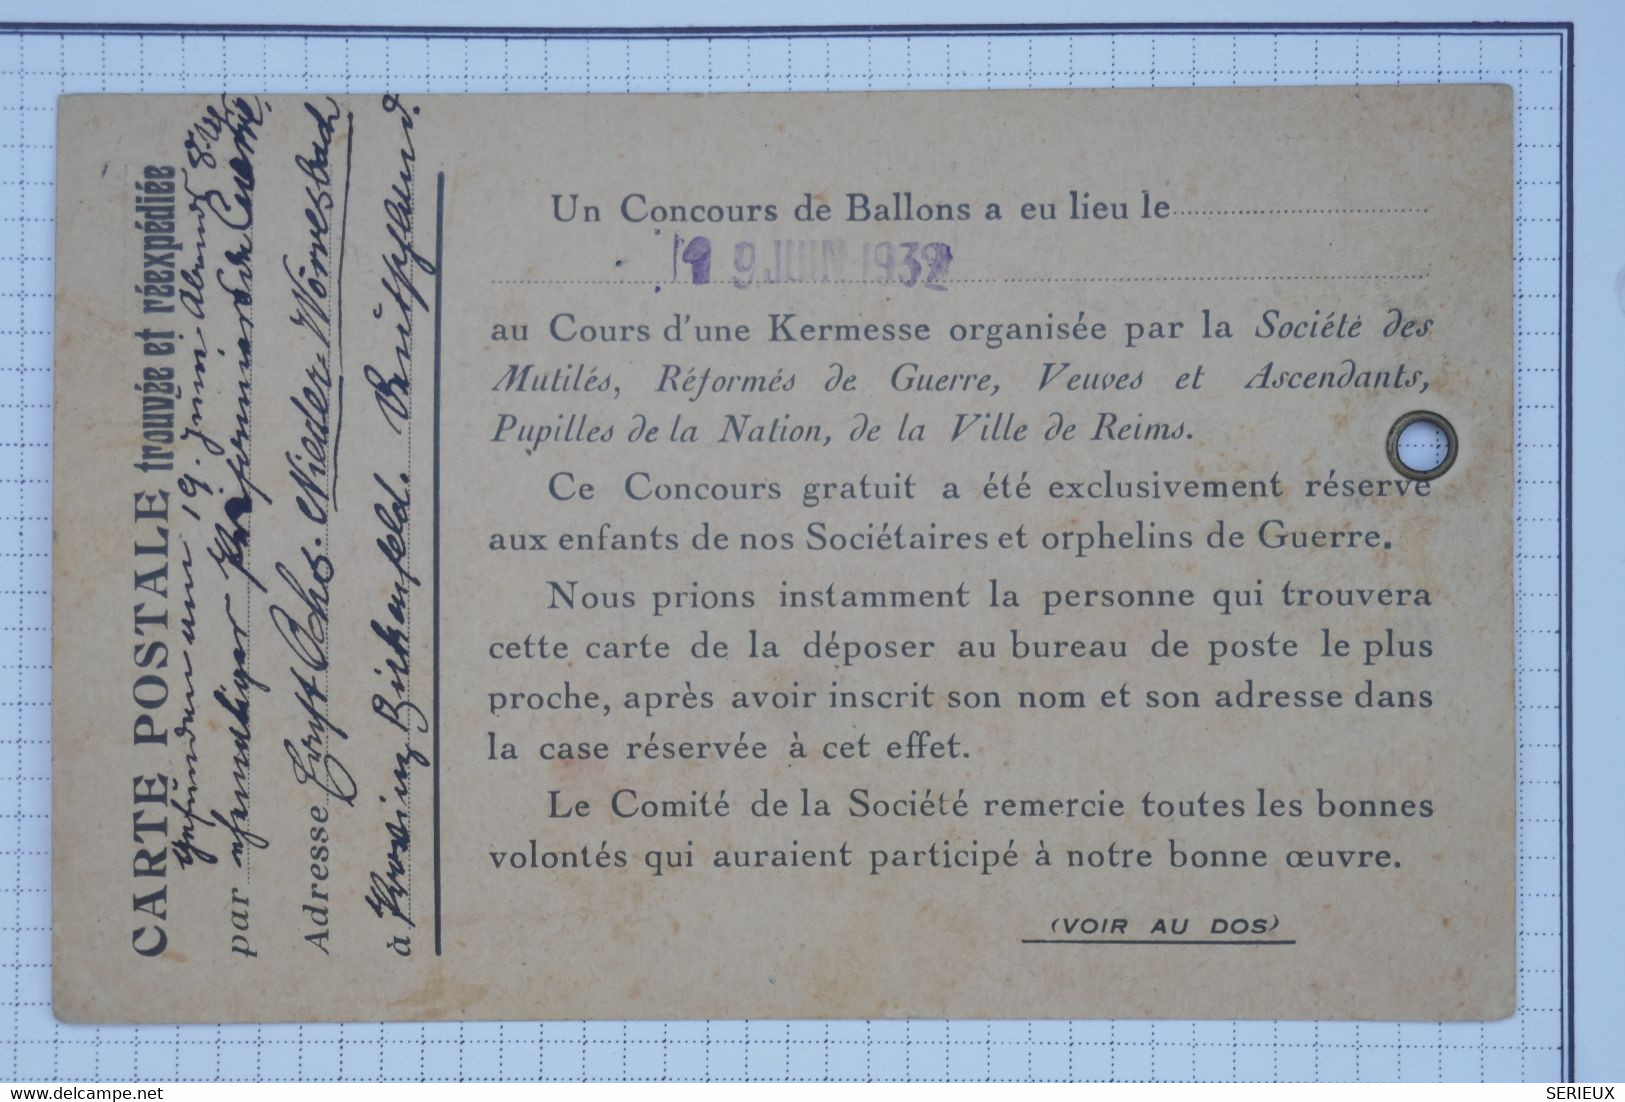 CARTE POSTALE trouvée et réexpédiée
Gefunden am 19. Juni Abends 8 Uhr
par
Adresse Ernst Nieder-Wörresbach
à Provinz Birkenfeld.
Un Concours de Ballons a eu lieu le
19 JUIN 1932
au Cours d'une Kermesse organisée par la Société des
Mutilés, Réformés de Guerre, Veuves et Ascendants,
Pupilles de la Nation, de la Ville de Reims.
Ce Concours gratuit a été exclusivement réservé
aux enfants de nos Sociétaires et orphelins de Guerre.
Nous prions instamment la personne qui trouvera
cette carte de la déposer au bureau de poste le plus
proche, après avoir inscrit son nom et son adresse dans
la case réservée à cet effet.
Le Comité de la Société remercie toutes les bonnes
volontés qui auraient participé à notre bonne œuvre.
(VOIR AU DOS)
www.delcampe.net
SERIEUX